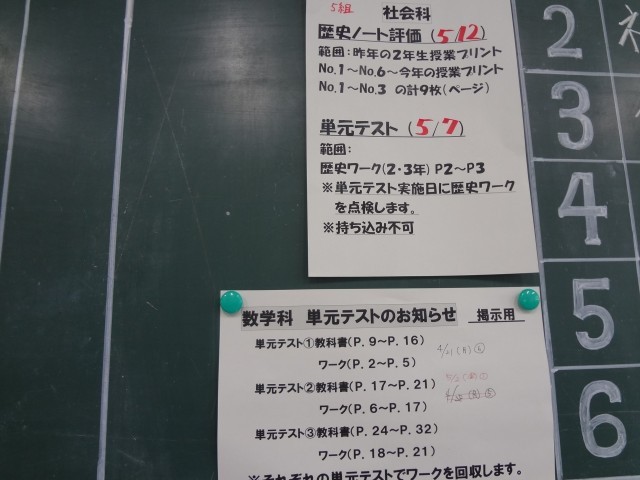 5組 社会科
歴史ノート評価（5/12）
範囲：昨年の2年生授業プリント
No.1～No.6～今年の授業プリント
No.1～No.3 の計9枚(ページ)
単元テスト（5/7）
範囲：
歴史ワーク(2・3年) P2～P3
※単元テスト実施日に歴史ワーク
を点検します。
※持ち込み不可
数学科 単元テストのお知らせ 掲示用
単元テスト①教科書(P.9～P.16)
ワーク(P.2～P.5)
4/21(月)⑥
単元テスト②教科書(P.17～P.21)
ワーク(P.6～P.17)
単元テスト③教科書(P.24～P.32)
ワーク(P.18～P.21)
※それぞれの単元テストでワークを回収します。
2
3
4
5
6